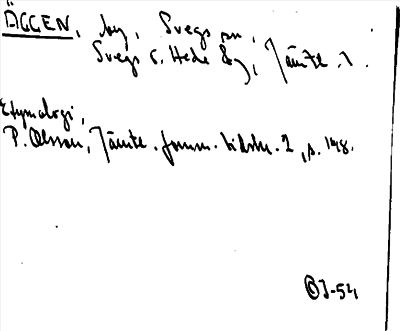 ÄGGEN, by, Svegs sn,
Svegs o. Hede dg, Jämtl. l.
Etymologi,
P. Olsson, Jämtl. fornm. tidskr. 2, s. 148.
OJ-54